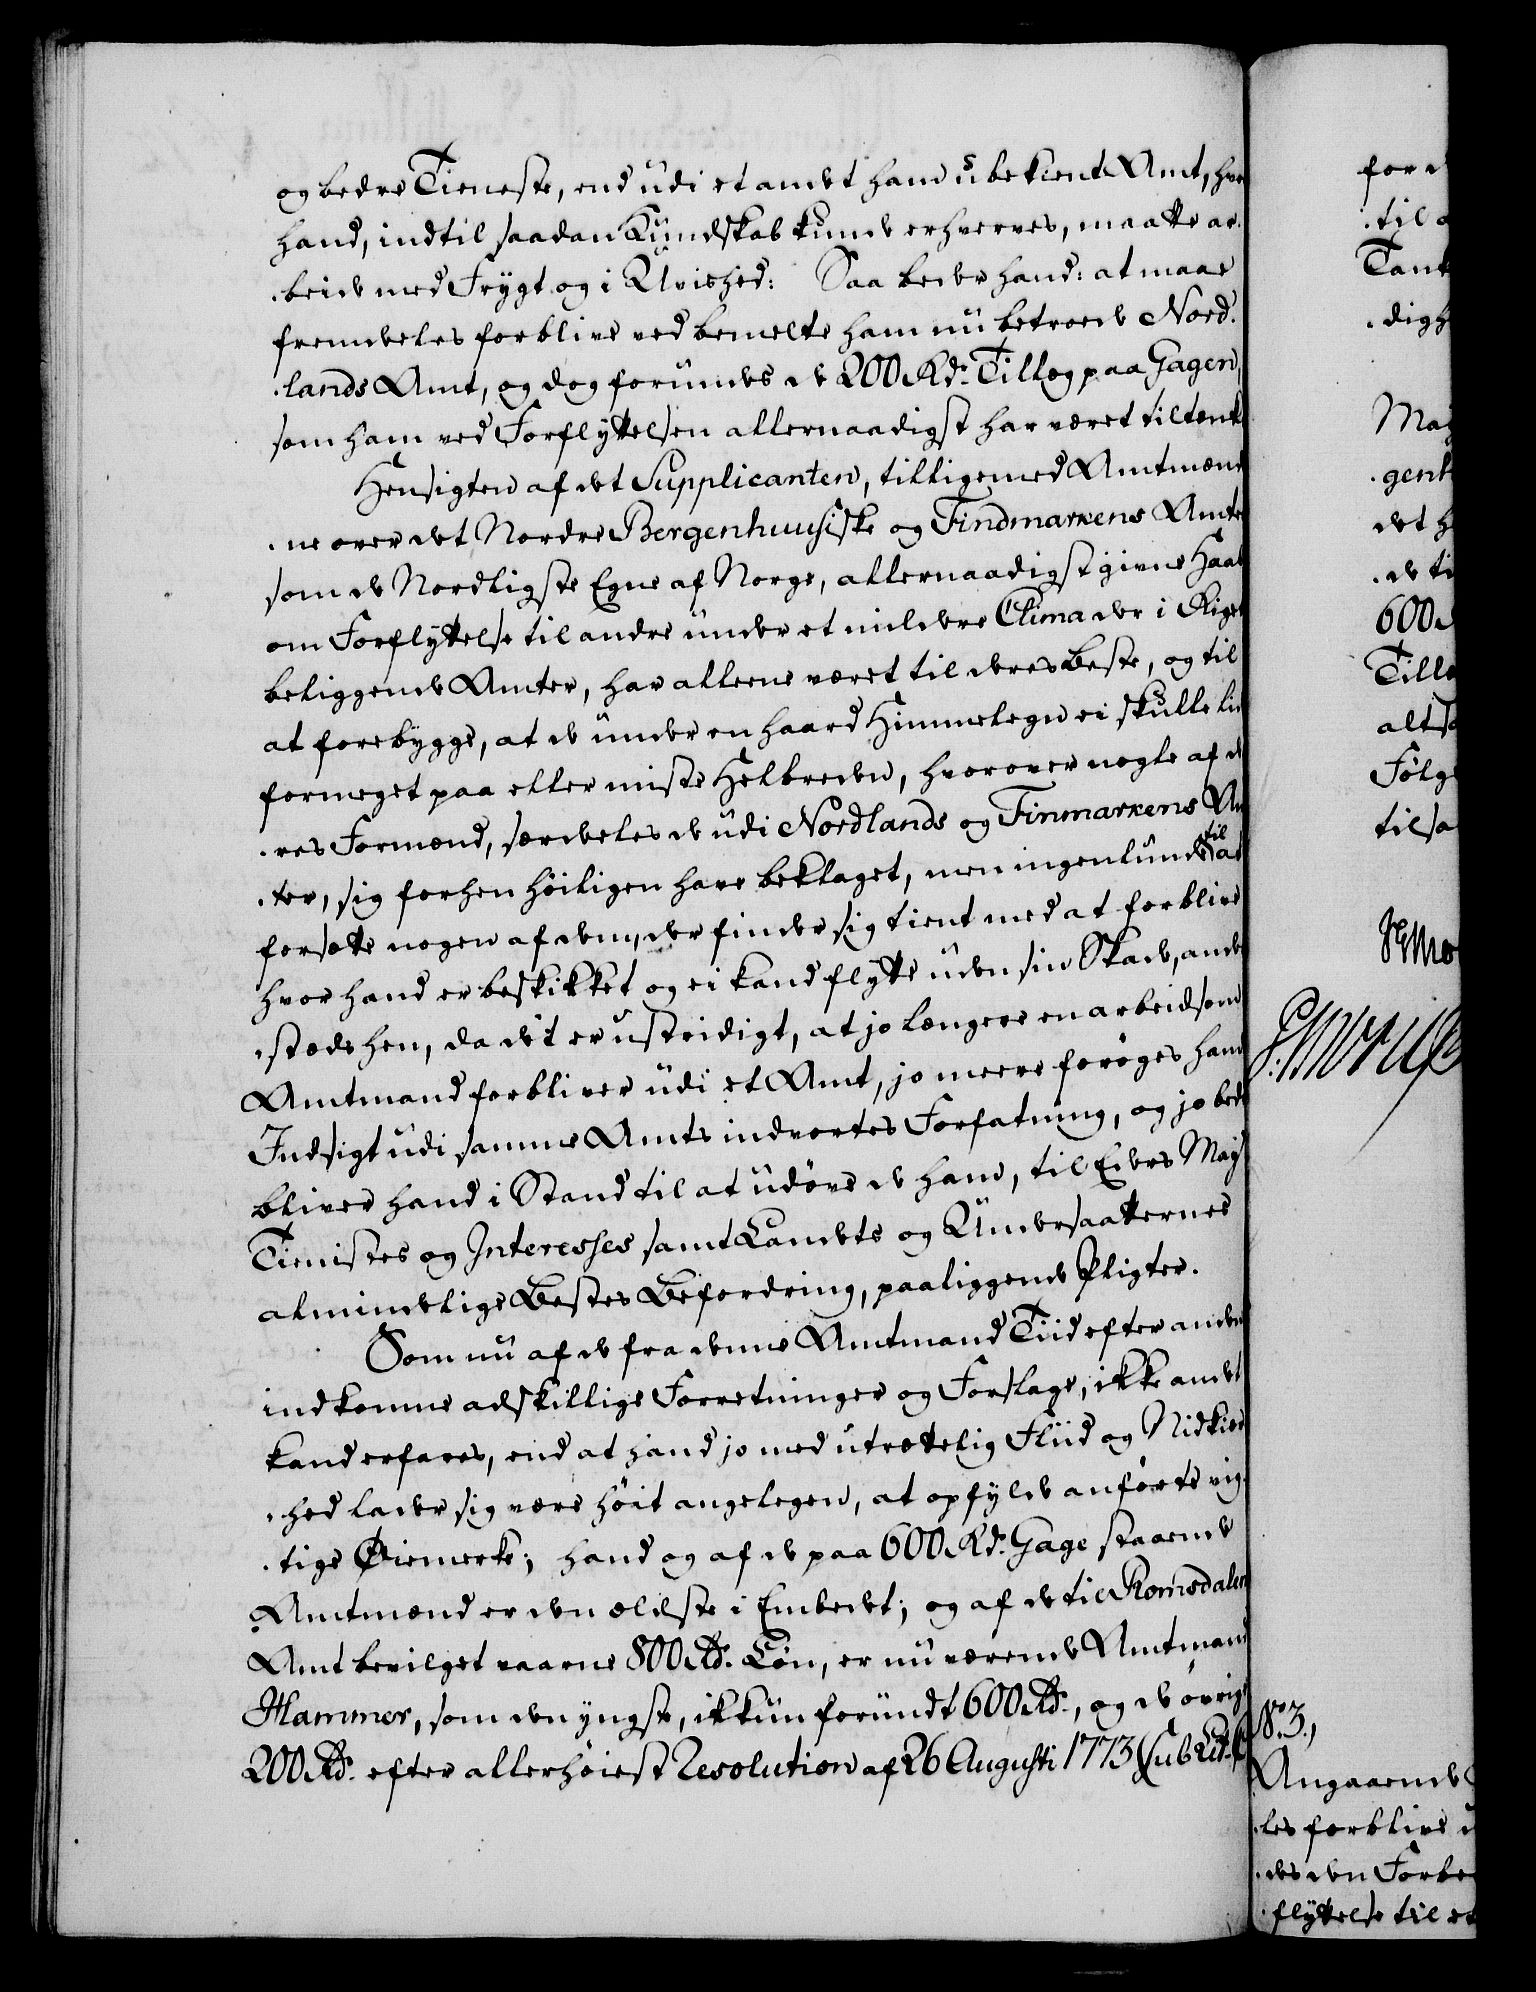 og bedre Tieneste, end udi et andet ham ubekient Amt, hvor
hand, indtil saadan Kundskab kunde erhverves, maatte ar-
beide med Frygt og i Uvished: Saa beder hand: at maae
fremdeles forblive ved bemelte ham nu betroede Nord-
lands Amt, og dog forundes de 200 Rdr. Tillæg paa Gagen,
som ham ved Forflyttelsen allernaadigst har været tiltænkt
Hensigten af det Supplicanten, tilligemed Amtmænd-
ne over det Nordre Bergenhuusiske og Findmarkens Amter
som de Nordligste Egne af Norge, allernaadigst givne Haab
om Forflyttelse til andre under et mildere Clima der i Riget
beliggende Amter, har alleene været til deres Beste, og til
at forebygge, at de under en haard Himmelegn ei skulle lide
formeget paa eller miste Helbreden, hvorover nogle af de-
res Formænd, særdeles de udi Nordlands og Finmarkens Am-
ter, sig forhen höiligen have beklaget, men ingenlunde til at
forsætte nogen af dem, der finder sig tient med at forblive
hvor hand er beskikket og ei kand flytte uden sin Skade, andet-
steds hen, da det er ustridigt, at jo længere en arbeidsom
Amtmand forbliver udi et Amt, jo meere forøges hans
Indsigt udi samme Amts indvortes Forfatning, og jo bedre
bliver hand i Stand til at udöve de ham, til Eders Mayts
Tienistes og Interesses samt Landets og Undersaatternes
almindelige Bestes Befordring, paaliggende Pligter.
Som nu af de fra denne Amtmand Tiid efter anden
indkomne adskillige Forretninger og Forslage, ikke andet
kand erfares, end at hand jo med utrættelig Fliid og Nidkier-
hed lader sig være höit angelegen, at opfylde anförte vig-
tige Øiemerke; hand og af de paa 600 Rdr. Gage staaende
Amtmænd er den ældste i Embedet; og af de til Romsdalens
Amt bevilget vaarne 800 Rdr. Lön, er nu værende Amtmand
Hammer, som den yngste, ikkun forundt 600 Rdr., og de øvrige
200 Rdr. efter allerhöiest Resolution af 26 Augusti 1773 (sub Lit.
for d
til
Tank
digh
May
genh
det h
de ti
600
Tillæ
altsa
Følg
tilsa
N. 3.,
Angaaende
les forblive u
des den Forbe
flyttelse til et